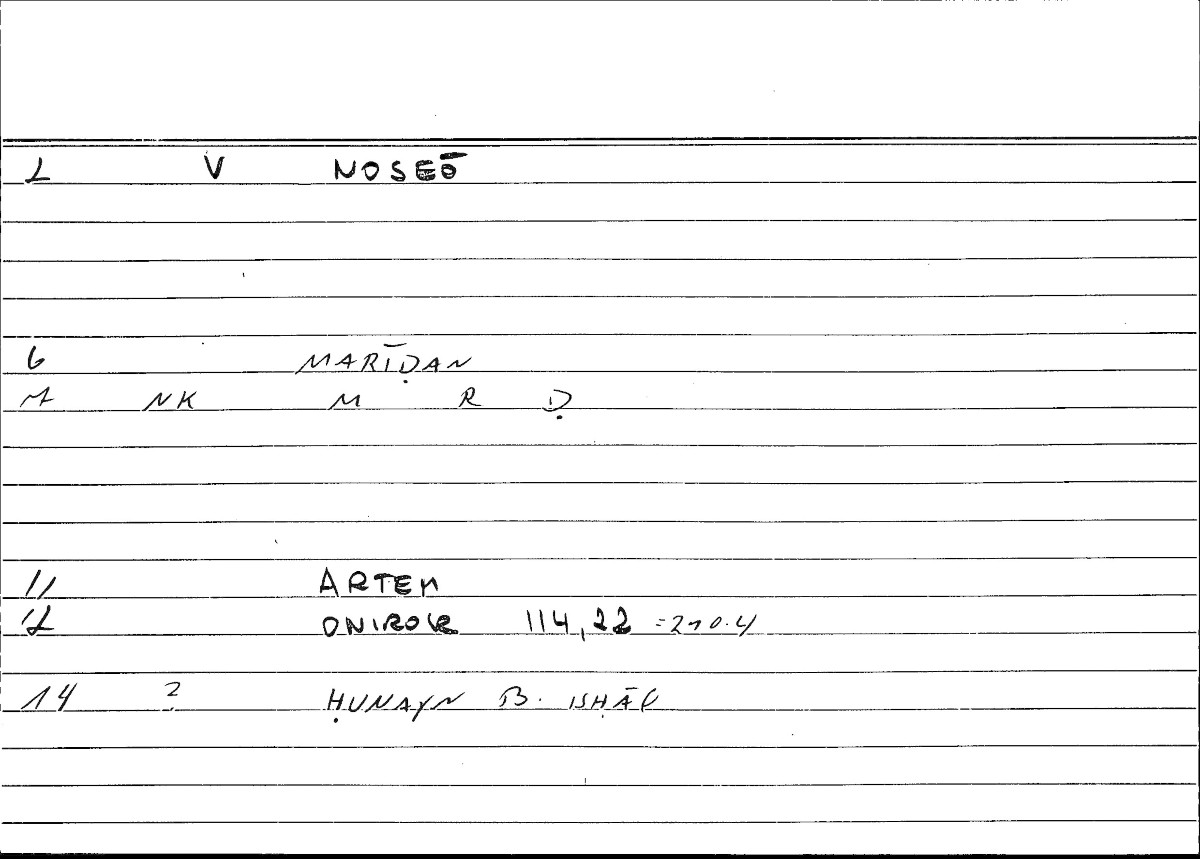 2 V NOSEŌ
6 MARĪḌAN
7 NK M R Ḍ
11 ARTEM
12 ONIROCR 114,22 =210.4
14 2 ḤUNAYN B. ISḤĀQ